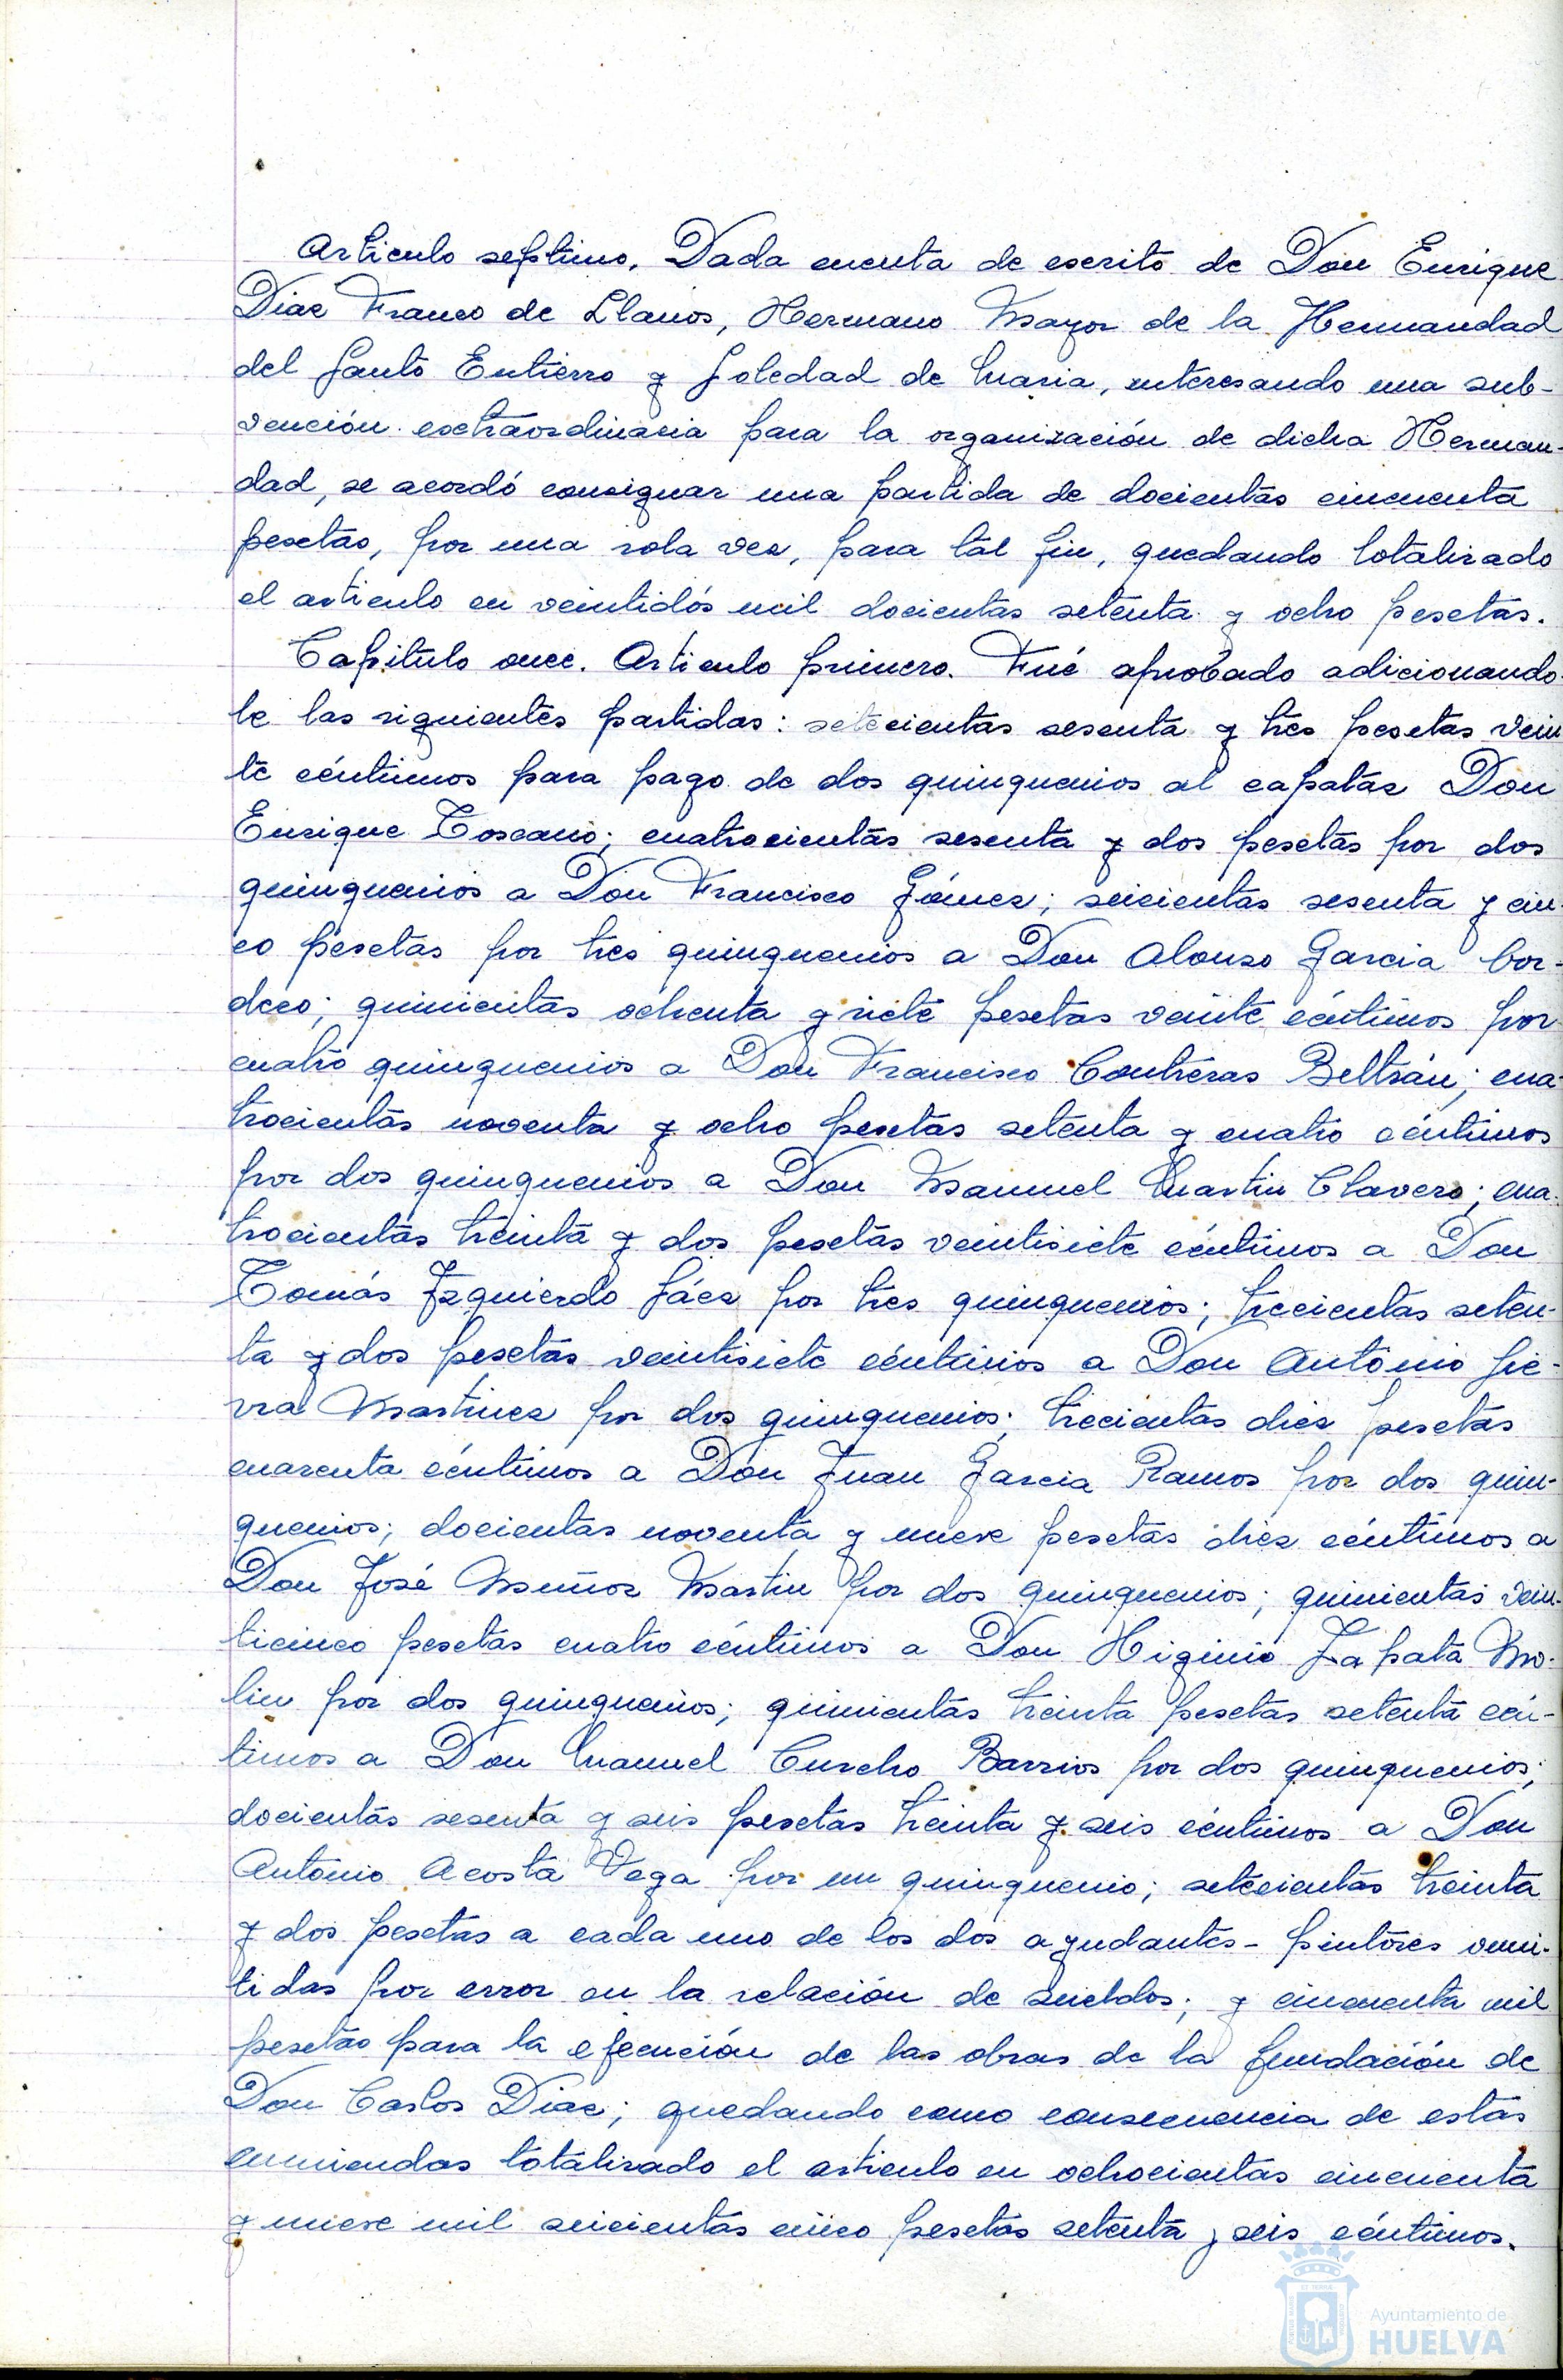 Articulo septimo. Dada cuenta de escrito de Don Enrique
Diaz Franco de Llanos, Hermano Mayor de la Hermandad
del Santo Entierro y Soledad de Maria, interesando una sub-
vención extraordinaria para la organización de dicha Herman-
dad, se acordó consignar una partida de docientas cincuenta
pesetas, por una sola vez, para tal fin, quedando totalizado
el articulo en veintidós mil docientas setenta y ocho pesetas.
Capitulo once. Articulo primero. Fué aprobado adicionando-
le las siguientes partidas: setecientas sesenta y tres pesetas vein
te céntimos para pago de dos quinquenios al capataz Don
Enrique Toscano; cuatrocientas sesenta y dos pesetas por dos
quinquenios a Don Francisco Gómez; seicientas sesenta y cin-
co pesetas por tres quinquenios a Don Alonso Garcia Cor-
dero; quinientas ochenta y siete pesetas veinte céntimos por
cuatro quinquenios a Don Francisco Contreras Beltrán; cua-
trocientas noventa y ocho pesetas setenta y cuatro céntimos
por dos quinquenios a Don Manuel Martin Clavero; cua-
trocientas treinta y dos pesetas veintisiete céntimos a Don
Tomás Izquierdo Sáez por tres quinquenios; trecientas seten-
ta y dos pesetas veintisiete céntimos a Don Antonio Sie-
rra Martinez por dos quinquenios; trecientas diez pesetas
cuarenta céntimos a Don Juan Garcia Ramos por dos quin-
quenios; docientas noventa y nueve pesetas diez céntimos a
Don José Muñoz Martin por dos quinquenios; quinientas vein-
ticinco pesetas cuatro céntimos a Don Higinio Zapata Mo-
lin por dos quinquenios; quinientas treinta pesetas setenta cén-
timos a Don Manuel Curcho Barrios por dos quinquenios;
docientas sesenta y seis pesetas treinta y seis céntimos a Don
Antonio Acosta Vega por un quinquenio; setecientas treinta
y dos pesetas a cada uno de los dos ayudantes-pintores omi-
tidas por error en la relación de sueldos; y cincuenta mil
pesetas para la ejecución de las obras de la fundación de
Don Carlos Diaz; quedando como consecuencia de estas
enmiendas totalizado el articulo en ochocientas cincuenta
y nueve mil seicientas cinco pesetas setenta y seis céntimos.
Ayuntamiento de
HUELVA